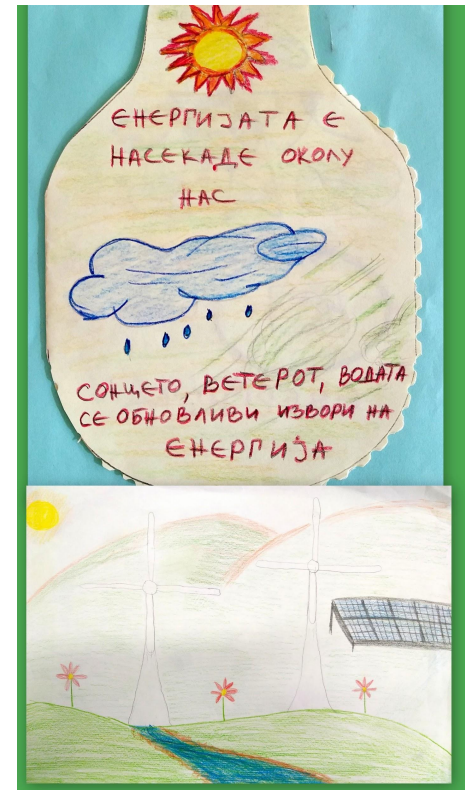 ЕНЕРГИЈАТА Е
НАСЕКАДЕ ОКОЛУ
НАС
СОНЦЕТО, ВЕТЕРОТ, ВОДАТА
СЕ ОБНОВЛИВИ ИЗВОРИ НА
ЕНЕРГИЈА